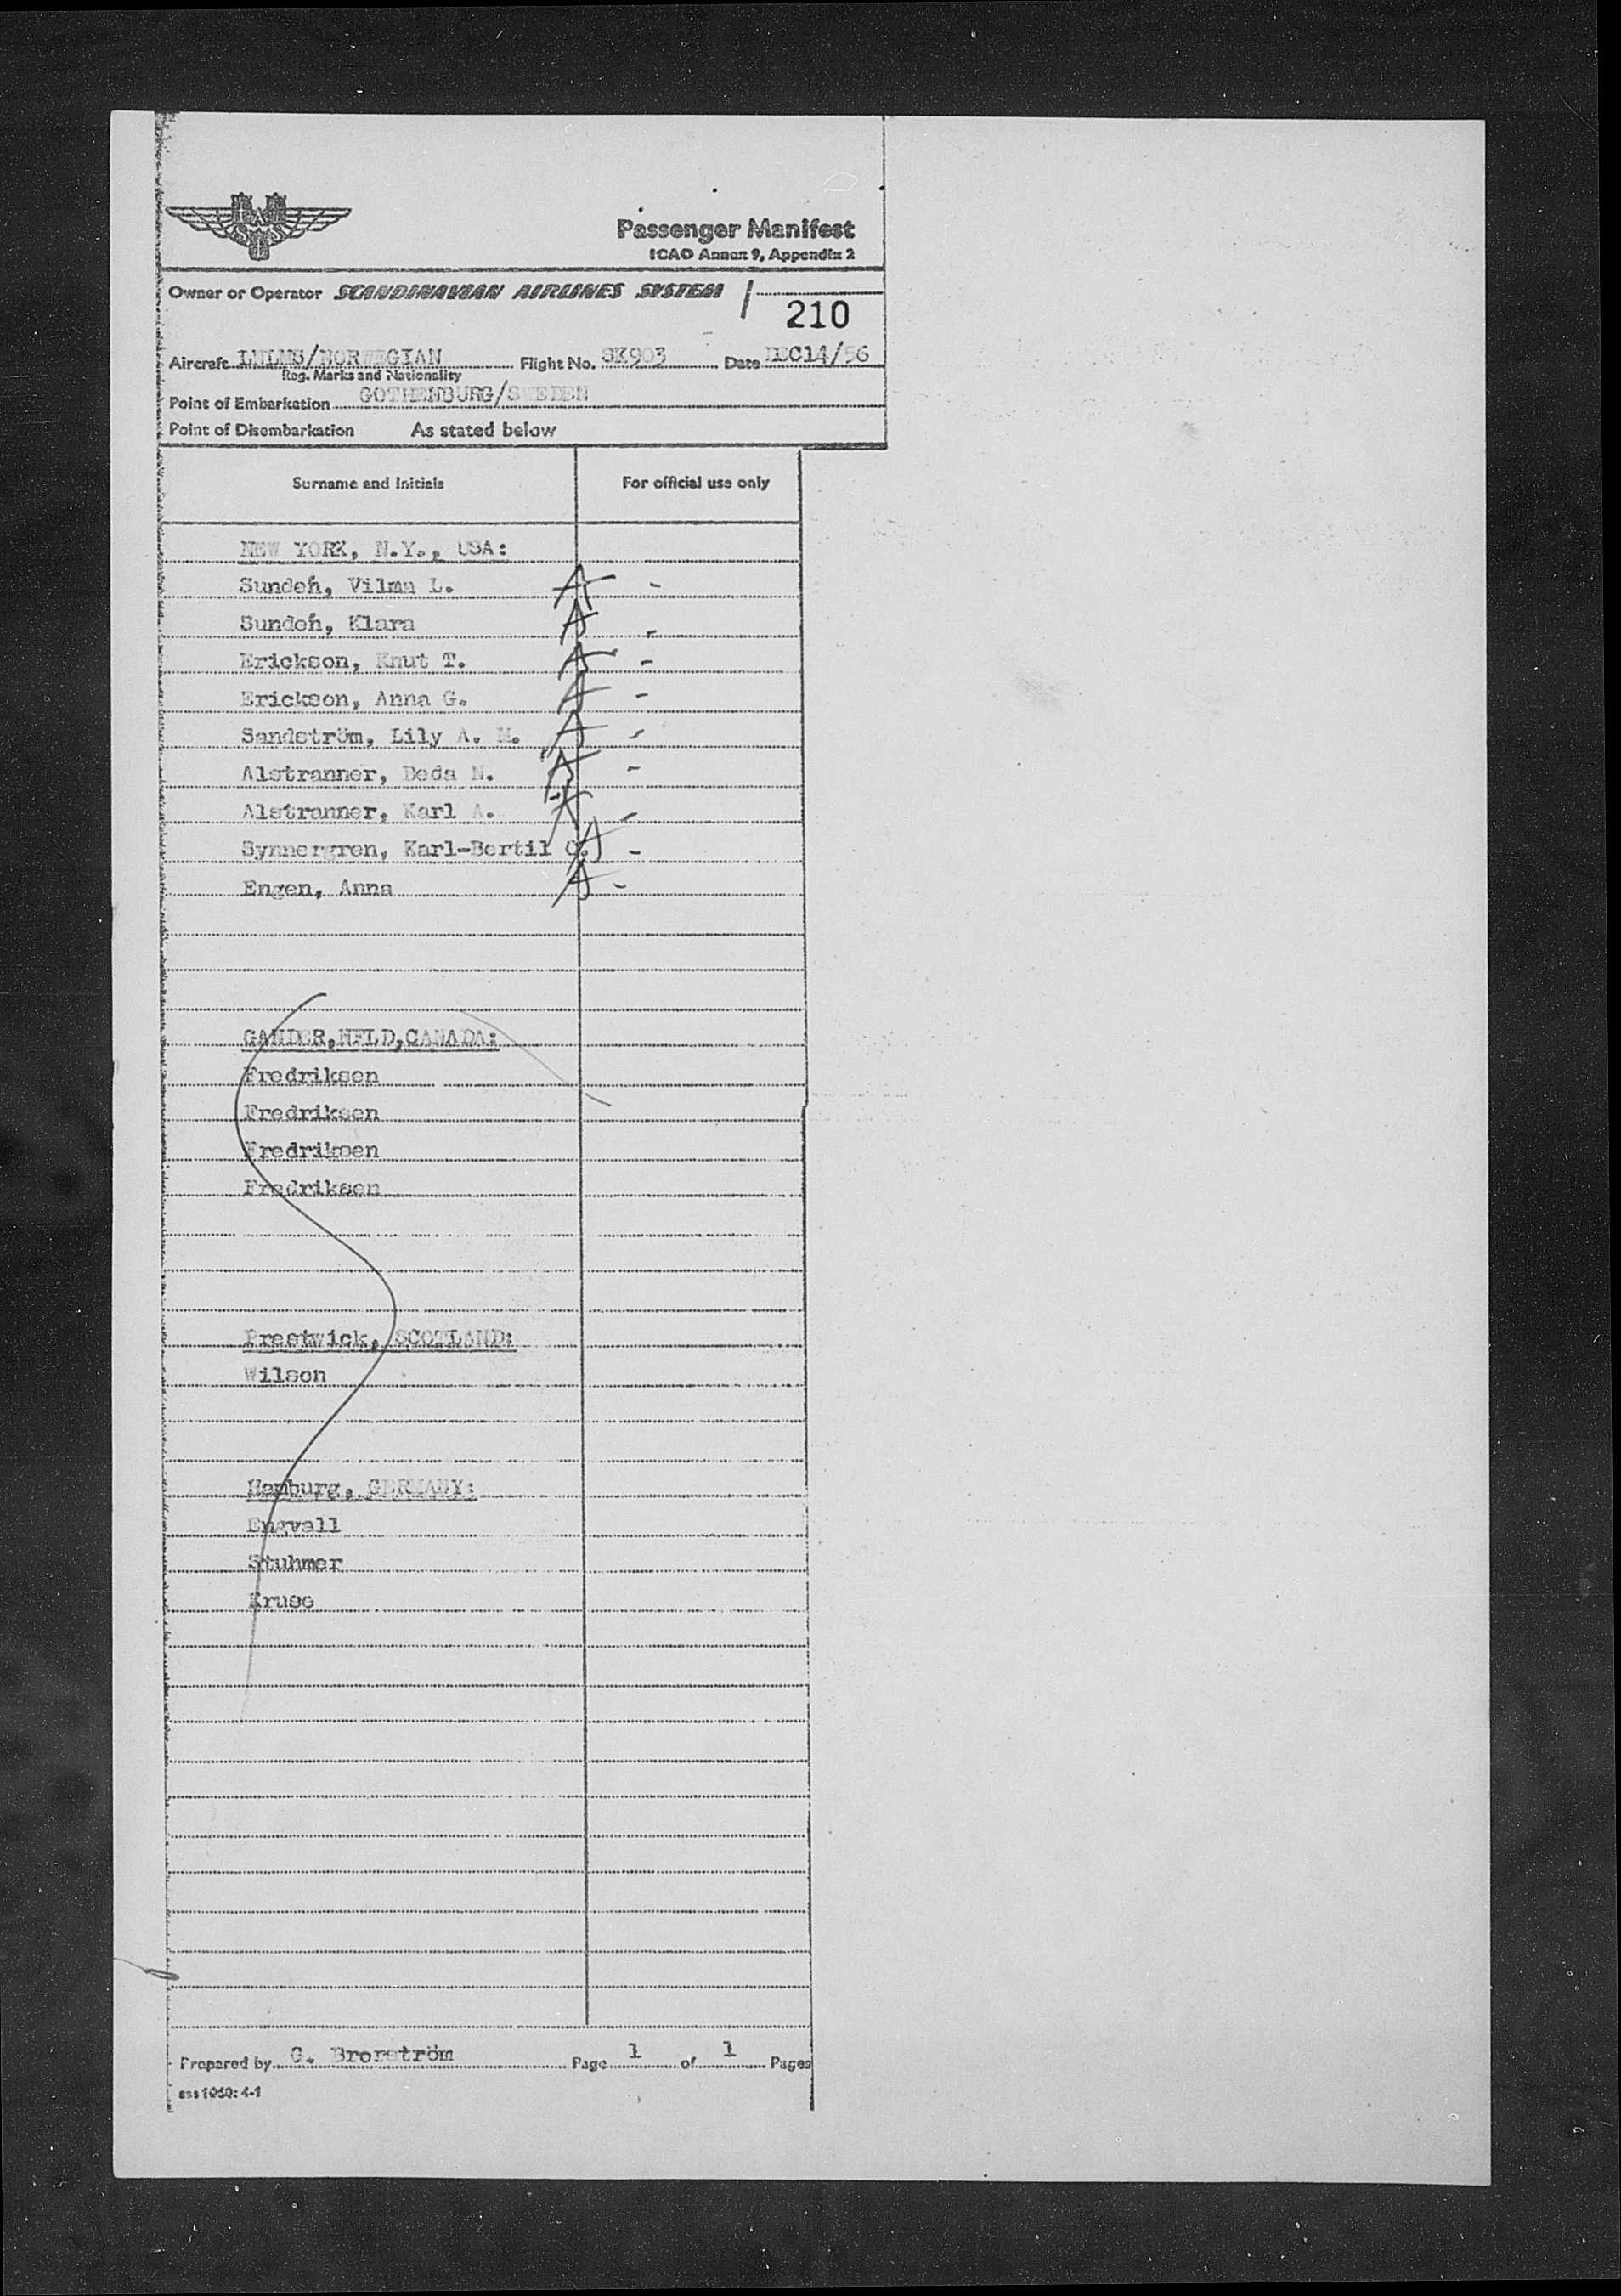 SAS
Passenger Manifest
ICAO Annex 9, Appendix 2
Owner or Operator SCANDINAVIAN AIRLINES SYSTEM
210
Aircraft /NORWEGIAN Flight No. SK903 Date DEC14/56
Reg. Marks and Nationality
Point of Embarkation GOTHENBURG/SWEDEN
Point of Disembarkation As stated below
Surname and Initials For official use only
NEW YORK, N.Y., USA:
Sundén, Vilma L. A -
Sundén, Klara A -
Erickson, Knut T. A -
Erickson, Anna G. A -
Sandström, Lily A. M. A -
Alstranner, Beda N. A -
Alstranner, Karl A. A -
Synnergren, Karl-Bertil A -
Engen, Anna A -
GANDER,NFLD,CANADA:
Fredriksen
Fredriksen
Fredriksen
Fredriksen
Prestwick, SCOTLAND:
Wilson
Hamburg, GERMANY:
Engvall
Stuhmer
Kruse
Prepared by G. Brorström Page 1 of 1 Pages
sas 1060: 4-1